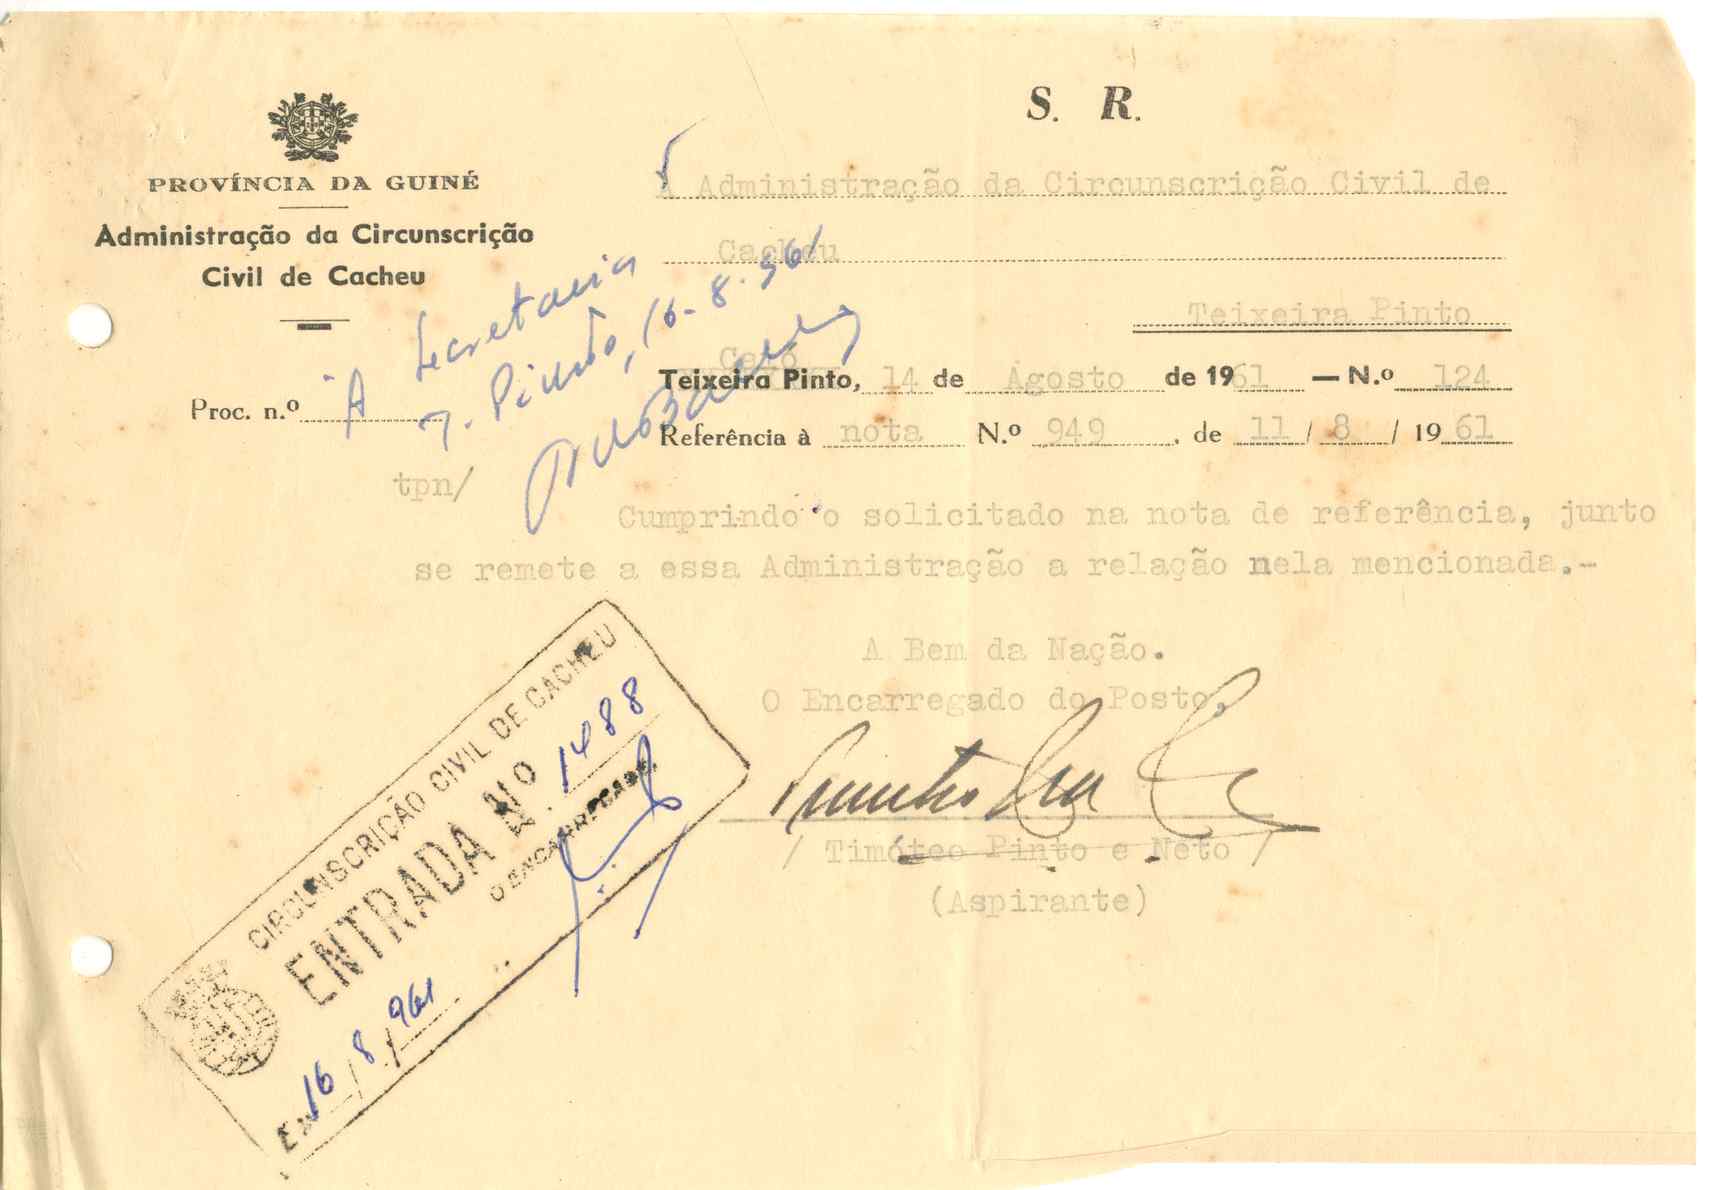 S. R.
PROVÍNCIA DA GUINÉ
Administração da Circunscrição
Civil de Cacheu
À Administração da Circunscrição Civil de
Cacheu
Teixeira Pinto
À Secretaria
T. Pinto, 16-8-961
Proc. n.º
Caió
Teixeira Pinto, 14 de Agosto de 1961 — N.º 124
Referência à nota N.º 949, de 11/8/1961
tpn/
Cumprindo o solicitado na nota de referência, junto
se remete a essa Administração a relação nela mencionada.-
A Bem da Nação.
O Encarregado do Posto,
/ Timóteo Pinto e Neto /
(Aspirante)
CIRCUNSCRIÇÃO CIVIL DE CACHEU
ENTRADA Nº 1488
O ENCARREGADO,
Em 16/8/961